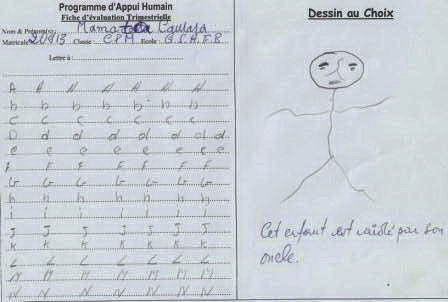 Programme d'Appui Humain
Fiche d'évaluation Trimestrielle
Nom & Prénom(s):
Matricule Classe: CPM Ecole
Lettre à:
A A A A A A
b b b b b b
C C C C C C
D d d d d d d
e e e e e e e
F F F F F F
G G G G G G
h h h h h h
i i i i i i
J J J J J J
K K K K K K
L L L L L L
M M M M M M
N N N N N N
Dessin au Choix
Cet enfant est par son
oncle.